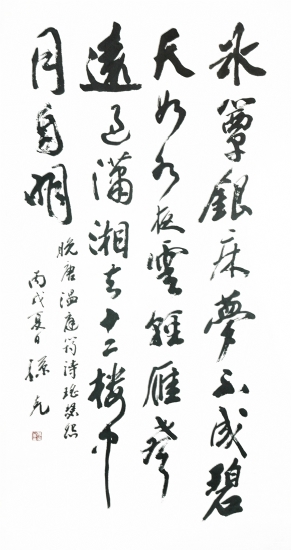 冰簟銀床夢不成碧
天如水夜雲輕雁聲
遠過瀟湘去十二樓中
月自明
晚唐溫庭筠詩瑤瑟怨
丙戌夏日孫